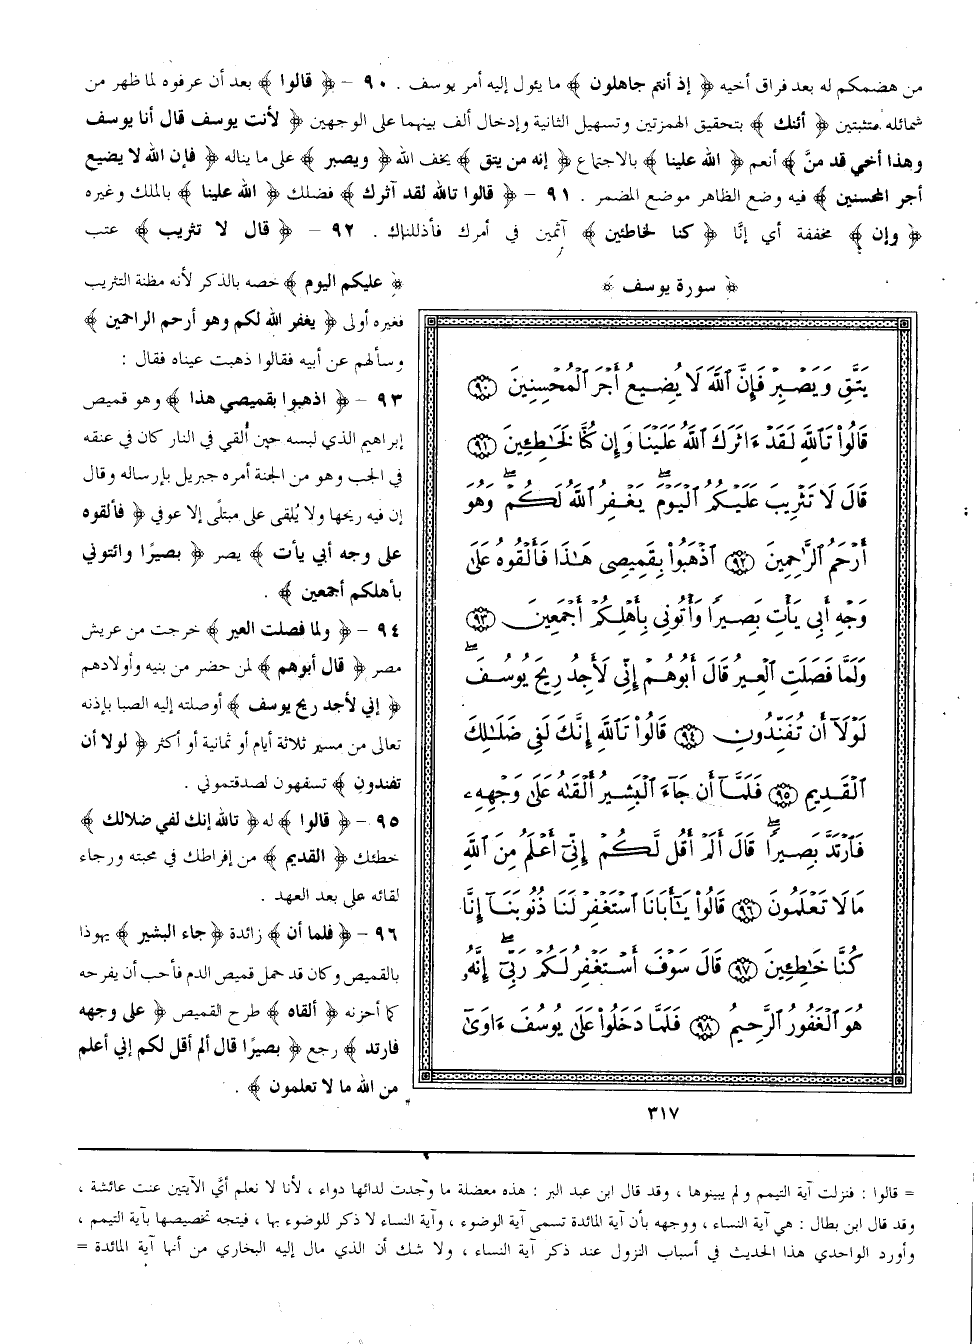 من هضمكم له بعد فراق أخيه ﴿ إذ أنتم جاهلون ﴾ ما يئول إليه أمر يوسف . ٩٠ – ﴿ قالوا ﴾ بعد أن عرفوه لما ظهر من
شمائله متثبتين ﴿ أئنك ﴾ بتحقيق الهمزتين وتسهيل الثانية وإدخال ألف بينهما على الوجهين ﴿ لأنت يوسف قال أنا يوسف
وهذا أخي قد منَّ ﴾ أنعم ﴿ الله علينا ﴾ بالاجتماع ﴿ إنه من يتق ﴾ يخف الله ﴿ ويصبر ﴾ على ما يناله ﴿ فإن الله لا يضيع
أجر المحسنين ﴾ فيه وضع الظاهر موضع المضمر . ٩١ – ﴿ قالوا تالله لقد آثرك ﴾ فضلك ﴿ الله علينا ﴾ بالملك وغيره
﴿ وإن ﴾ مخففة أي إنَّا ﴿ كنا لخاطئين ﴾ آثمين في أمرك فأذللناك . ٩٢ – ﴿ قال لا تثريب ﴾ عتب
﴿ عليكم اليوم ﴾ خصه بالذكر لأنه مظنة التثريب
فغيره أولى ﴿ يغفر الله لكم وهو أرحم الراحمين ﴾
وسألهم عن أبيه فقالوا ذهبت عيناه فقال :
٩٣ – ﴿ اذهبوا بقميصي هذا ﴾ وهو قميص
إبراهيم الذي لبسه حين أُلقي في النار كان في عنقه
في الجب وهو من الجنة أمره جبريل بإرساله وقال
إن فيه ريحها ولا يُلقى على مبتلًى إلا عوفي ﴿ فألقوه
على وجه أبي يأت ﴾ يصر ﴿ بصيرًا وائتوني
بأهلكم أجمعين ﴾ .
٩٤ – ﴿ ولما فصلت العير ﴾ خرجت من عريش
مصر ﴿ قال أبوهم ﴾ لمن حضر من بنيه وأولادهم
﴿ إني لأجد ريح يوسف ﴾ أوصلته إليه الصبا بإذنه
تعالى من مسير ثلاثة أيام أو ثمانية أو أكثر ﴿ لولا أن
تفندون ﴾ تسفهون لصدقتموني .
٩٥ – ﴿ قالوا ﴾ له ﴿ تالله إنك لفي ضلالك ﴾
خطئك ﴿ القديم ﴾ من إفراطك في محبته ورجاء
لقائه على بعد العهد .
٩٦ – ﴿ فلما أن ﴾ زائدة ﴿ جاء البشير ﴾ يهوذا
بالقميص وكان قد حمل قميص الدم فأحب أن يفرحه
كما أحزنه ﴿ ألقاه ﴾ طرح القميص ﴿ على وجهه
فارتد ﴾ رجع ﴿ بصيرًا قال ألم أقل لكم إني أعلم
من الله ما لا تعلمون ﴾ .
﴿ سورة يوسف ﴾
يَتَّقِ وَيَصْبِرْ فَإِنَّ ٱللَّهَ لَا يُضِيعُ أَجْرَ ٱلْمُحْسِنِينَ ٩٠
قَالُوا۟ تَٱللَّهِ لَقَدْ ءَاثَرَكَ ٱللَّهُ عَلَيْنَا وَإِن كُنَّا لَخَٰطِـِٔينَ ٩١
قَالَ لَا تَثْرِيبَ عَلَيْكُمُ ٱلْيَوْمَ ۖ يَغْفِرُ ٱللَّهُ لَكُمْ ۖ وَهُوَ
أَرْحَمُ ٱلرَّٰحِمِينَ ٩٢ ٱذْهَبُوا۟ بِقَمِيصِى هَٰذَا فَأَلْقُوهُ عَلَىٰ
وَجْهِ أَبِى يَأْتِ بَصِيرًا وَأْتُونِى بِأَهْلِكُمْ أَجْمَعِينَ ٩٣
وَلَمَّا فَصَلَتِ ٱلْعِيرُ قَالَ أَبُوهُمْ إِنِّى لَأَجِدُ رِيحَ يُوسُفَ ۖ
لَوْلَآ أَن تُفَنِّدُونِ ٩٤ قَالُوا۟ تَٱللَّهِ إِنَّكَ لَفِى ضَلَٰلِكَ
ٱلْقَدِيمِ ٩٥ فَلَمَّآ أَن جَآءَ ٱلْبَشِيرُ أَلْقَىٰهُ عَلَىٰ وَجْهِهِۦ
فَٱرْتَدَّ بَصِيرًا ۖ قَالَ أَلَمْ أَقُل لَّكُمْ إِنِّىٓ أَعْلَمُ مِنَ ٱللَّهِ
مَا لَا تَعْلَمُونَ ٩٦ قَالُوا۟ يَٰٓأَبَانَا ٱسْتَغْفِرْ لَنَا ذُنُوبَنَآ إِنَّا
كُنَّا خَٰطِـِٔينَ ٩٧ قَالَ سَوْفَ أَسْتَغْفِرُ لَكُمْ رَبِّىٓ ۖ إِنَّهُۥ
هُوَ ٱلْغَفُورُ ٱلرَّحِيمُ ٩٨ فَلَمَّا دَخَلُوا۟ عَلَىٰ يُوسُفَ ءَاوَىٰٓ
٣١٧
= قالوا : فنزلت آية التيمم ولم يبينوها ، وقد قال ابن عبد البر : هذه معضلة ما وجدت لدائها دواء ، لأنا لا نعلم أيَّ الآيتين عنت عائشة ،
وقد قال ابن بطال : هي آية النساء ، ووجهه بأن آية المائدة تسمى آية الوضوء ، وآية النساء لا ذكر للوضوء بها ، فيتجه تخصيصها بآية التيمم ،
وأورد الواحدي هذا الحديث في أسباب النزول عند ذكر آية النساء ، ولا شك أن الذي مال إليه البخاري من أنها آية المائدة =